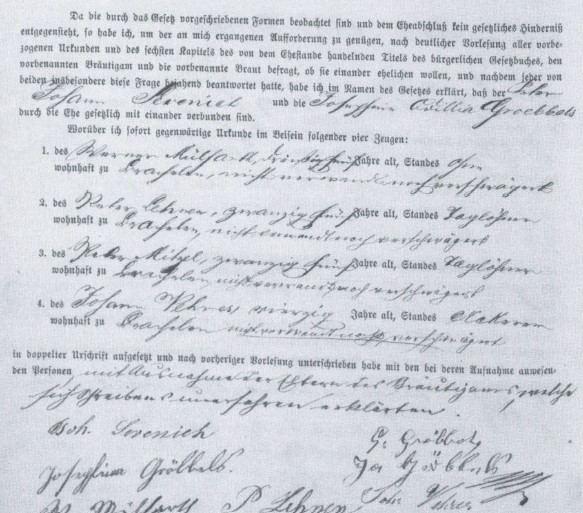 Da die durch das Gesetz vorgeschriebenen Formen beobachtet sind und dem Eheabschluß kein gesetzliches Hinderniß
entgegensteht, so habe ich, um der an mich ergangenen Aufforderung zu genügen, nach deutlicher Vorlesung aller vorbe-
zogenen Urkunden und des sechsten Kapitels des von dem Ehestande handelnden Titels des bürgerlichen Gesetzbuches, den
vorbenannten Bräutigam und die vorbenannte Braut befragt, ob sie einander ehelichen wollen, und nachdem jeder von
beiden insbesondere diese Frage bejahend beantwortet hatte, habe ich im Namen des Gesetzes erklärt, daß der Peter
Johann und die Josephina
durch die Ehe gesetzlich mit einander verbunden sind.
Worüber ich sofort gegenwärtige Urkunde im Beisein folgender vier Zeugen:
1. des Werner Milfarth, dreißig fünf Jahre alt, Standes
wohnhaft zu Brachelen, nicht verwandt noch verschwägert
2. des Peter Lehnen, zwanzig fünf Jahre alt, Standes Taglöhner
wohnhaft zu Brachelen, nicht verwandt noch verschwägert
3. des Peter zwanzig fünf Jahre alt, Standes Taglöhner
wohnhaft zu Brachelen nicht verwandt noch verschwägert
4. des Johann Vehres vierzig Jahre alt, Standes Ackerer
wohnhaft zu Brachelen nicht verwandt noch verschwägert
in doppelter Urschrift aufgesetzt und nach vorheriger Vorlesung unterschrieben habe mit den bei deren Aufnahme anwesen-
den Personen mit Ausnahme der Eltern des Bräutigams, welche
sich Schreibens unerfahren erklärten.
Joh. Sevenich G. Gröbbels
Josephina Gröbbels. Gröbbels
W. Milfarth P. Lehnen Joh. Vehres